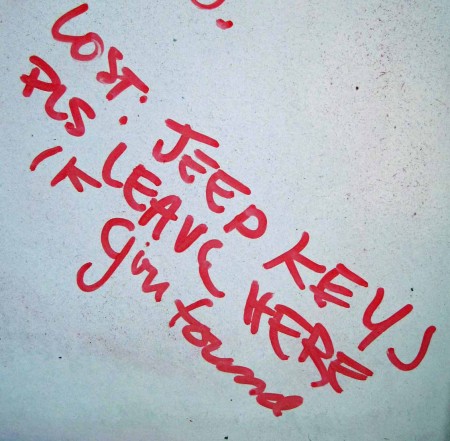 LOST: JEEP KEYS
PLS LEAVE HERE
IF you found